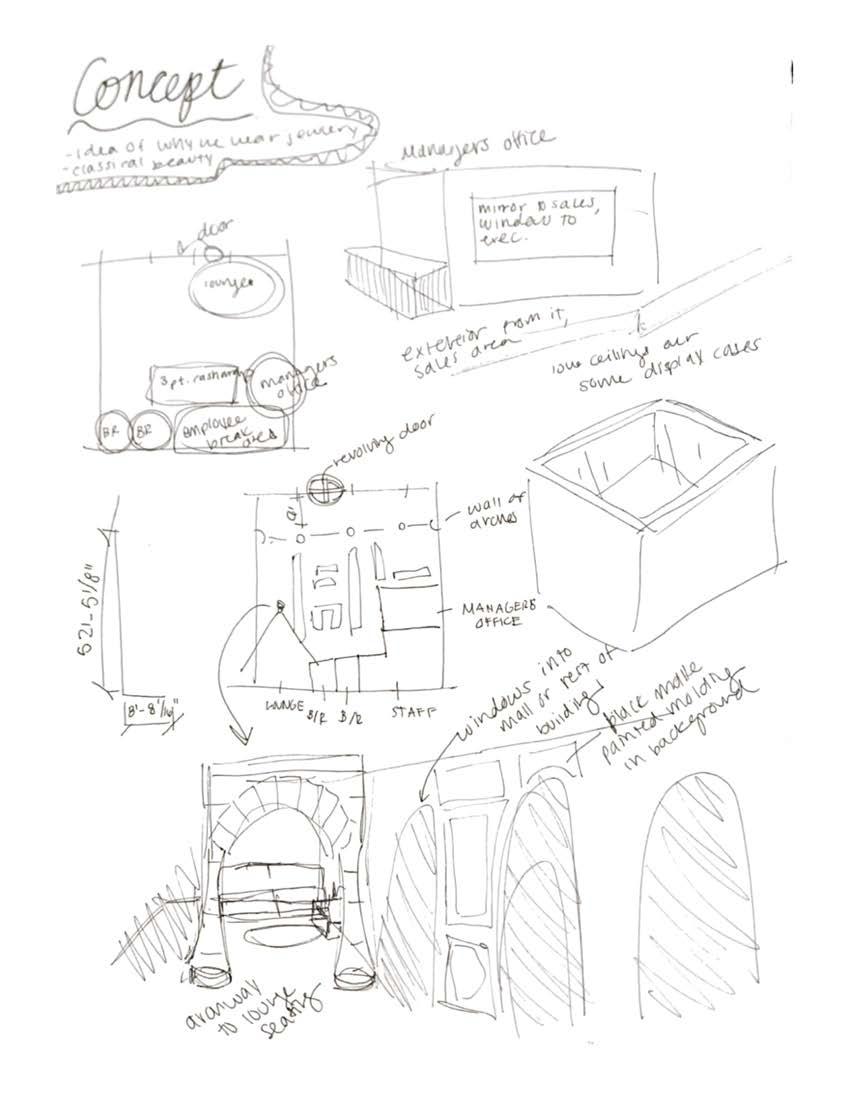 Concept
-idea of why we wear jewelry
-classical beauty
Managers office
mirror to sales,
window to
exec.
door
lounge
3 pt.
managers
office
BR
BR
employee
break
area
exterior from it,
sales area
low ceilings over
some display cases
revolving door
wall of
arches
MANAGERS
OFFICE
LOUNGE
B/R
B/R
STAFF
8'-8 1/16"
windows into
mall or rest of
building
black matte
painted molding
in background
to lounge
seating